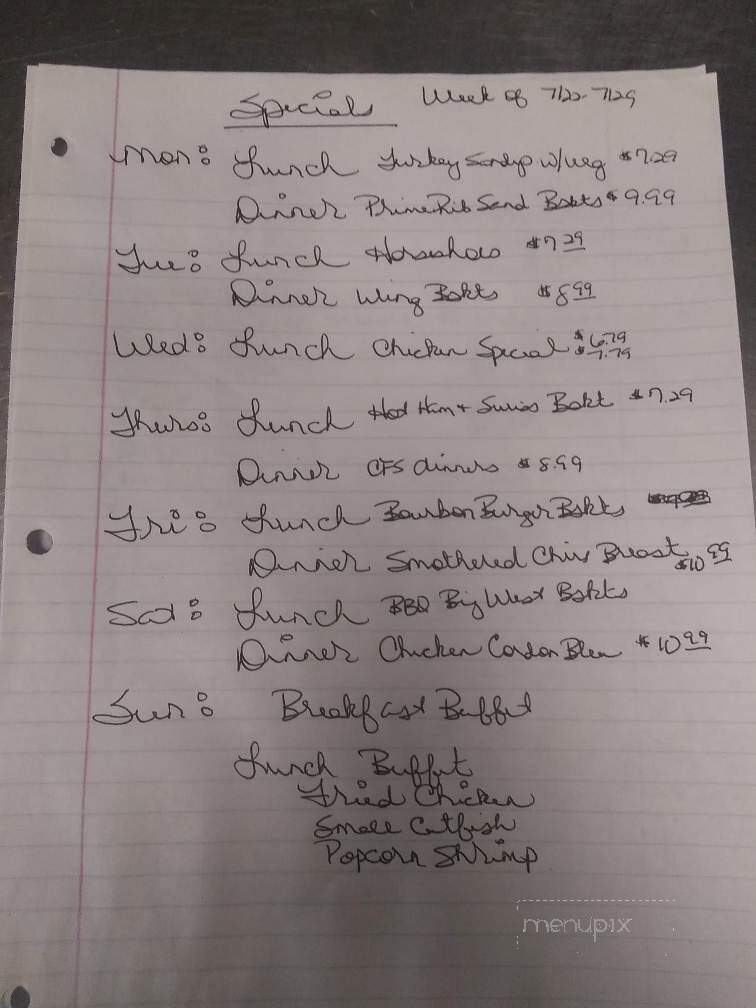 Specials Week of 7/22-7/29
Mon: Lunch Turkey Sandwp w/veg $7.29
Dinner Prime Rib Sand Bskts $9.99
Tue: Lunch Horseshoes $7.29
Dinner Wing Bskts $8.99
Wed: Lunch Chicken Special $6.79
$7.79
Thurs: Lunch Hot Ham + Swiss Bskt $7.29
Dinner CFS dinners $8.99
Fri: Lunch Bourbon Burger Bskts
Dinner Smothered Chix Breast $10.99
Sat: Lunch BBQ Big West Bskts
Dinner Chicken Cordon Bleu $10.99
Sun: Breakfast Buffet
Lunch Buffet
Fried Chicken
Smole Catfish
Popcorn Shrimp
menupix